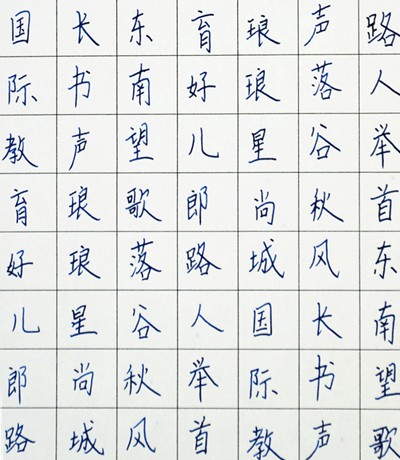 国长东育琅声路
际书南好琅落人
教声望儿星谷举
育琅歌郎尚秋首
好琅落路城风东
儿星谷人国长南
郎尚秋举际书望
路城风首教声歌